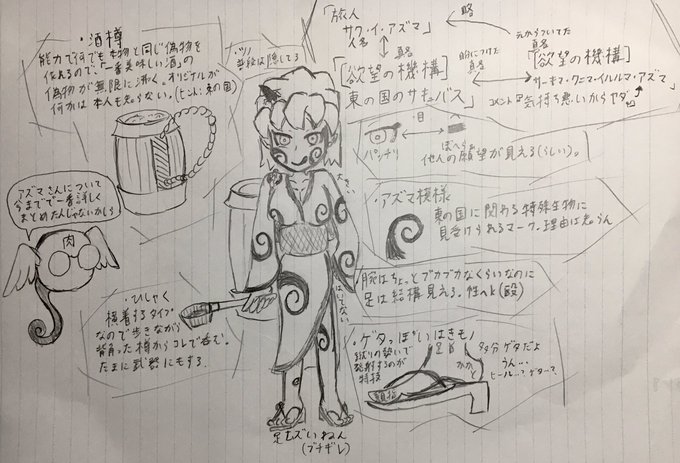 ・酒樽
能力で何でも本物と同じ偽物を
作れるので、「一番美味しい酒」の
偽物が無限に沸く。オリジナルが
何かは本人も知らない。(ヒント:東の国)
・ツノ
普段は隠してる
「旅人
サク・イ・アズマ」
人名
略
略
元からついてた
真名
真名
「欲望の機構
東の国のサキュバス」
的につけた
真名
「欲望の機構」
サーキマ・クニマ・イルルマ・アズマ」
コメント『気持ち悪いからヤダ』
・目
パッチリ
他人の願望が見える(らしい)。
・アズマ模様
東の国に関わる特殊生物に
見受けられるマーク。理由は知らん
・腕はちょっとブカブカなくらいなのに
足は結構見える。性へk(殴)
・ゲタっぽいはきもの
蹴りの勢いで
発射するのが
特技
足首
かかと
親指
多分ゲタだよ
うん…
ヒール…?ゲター?
アズマさんについて
今までで一番詳しく
まとめたんじゃないかしら
肉
・ひしゃく
横着するタイプ
なので歩きながら
背負った樽からコレで呑む。
たまに武器にもする。
はいてない
足ムズいねん
(ブチギレ)